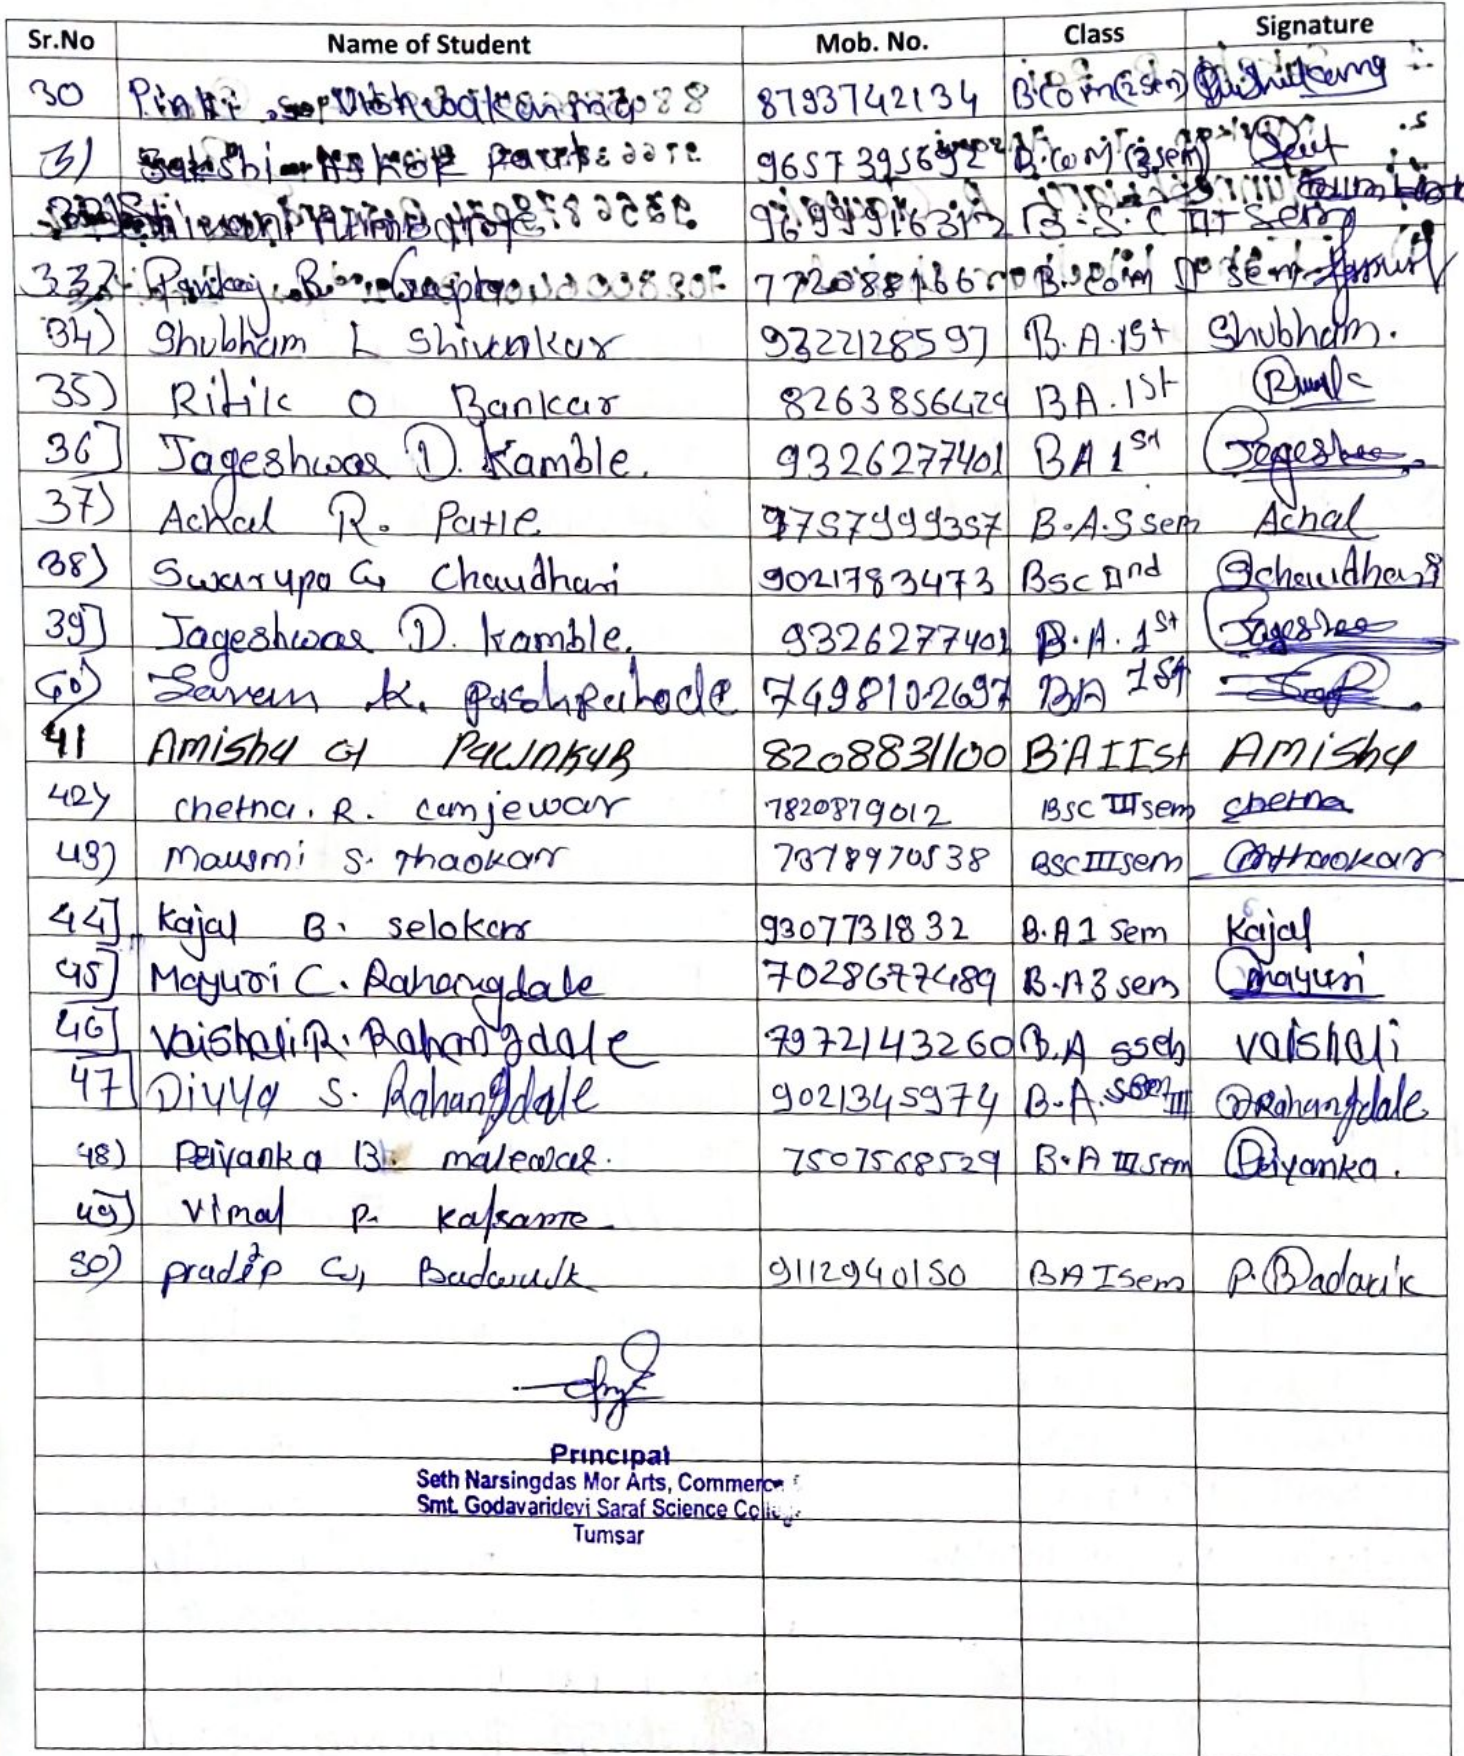 Sr.No Name of Student Mob. No. Class Signature
30 Pinki s. Vishwakarma 8793742134 B.com(2sem)
31) Sakshi Ashok Raut 9657395692 B.com (2sem) Raut
Shivani B.S.C III Sem
33) Pankaj B. Gupta B.com sem
34) Shubham L Shivankar 9322128597 B.A.1st Shubham.
35) Ritik O Bankar 8263856429 BA.1st
36] Jageshwar D. Kamble. 9326277401 BA 1st Jageshwar
37) Achal R. Patle 9757999357 B.A.5sem Achal
38) Swarupa G. Chaudhari 9021783473 Bsc IInd Schaudhari
39] Jageshwar D. kamble. 9326277401 B.A. 1st Jageshwar
40) K. 7498102697 BA 1st
41 Amisha G PawnkuR 8208831100 B.A IIst Amisha
42) chetna. R. camjewar 7820879012 BSC III sem chetna
43) Mausmi S. Thaokar 7378970538 BSC III sem Mthaokar
44] Kajal B. selokar 9307731832 B.A 1 sem Kajal
45] Mayuri C. Rahangdale 7028677489 B.A 3 sem mayuri
46] Vaishali R. Rahangdale 7972143260 B.A vaishali
47] Divya S. Rahangdale 9021345974 B.A. sem III DRahangdale
48) Priyanka B. malewar. 7507568529 B.A III sem Priyanka.
49) Vimal P. Kalsarpe
50) pradip G, Badwaik 9112940150 BA I sem P. Badwaik
Principal
Seth Narsingdas Mor Arts, Commerce
Smt. Godavaridevi Saraf Science College
Tumsar